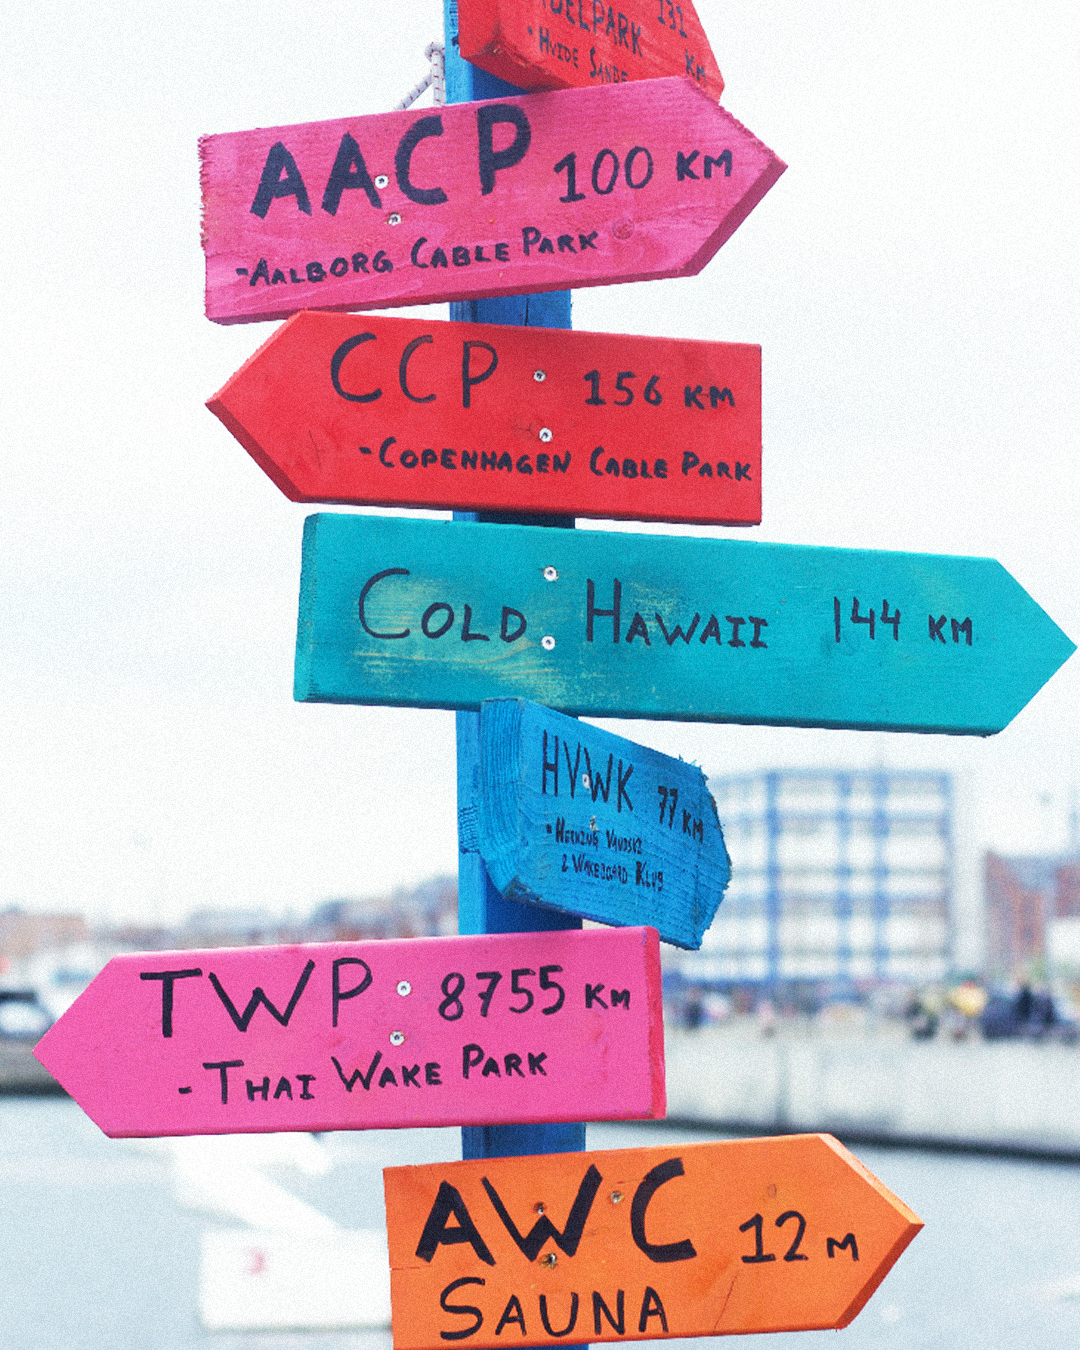 DELPARK 131 KM
- HVIDE SANDE
AACP 100 KM
- AALBORG CABLE PARK
CCP 156 KM
- COPENHAGEN CABLE PARK
COLD HAWAII 144 KM
HVWK 77 KM
- HERNING VANDSKI
& WAKEBOARD KLUB
TWP 8755 KM
- THAI WAKE PARK
AWC 12 M
SAUNA